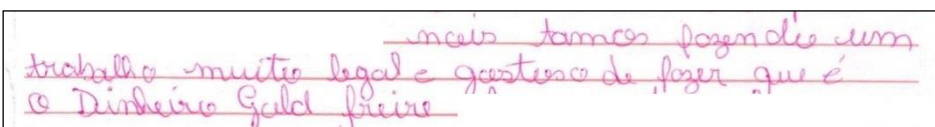 mais tamos fazendo um
trabalho muito legal e gostoso de fazer que é
o Dinheiro Gald freire